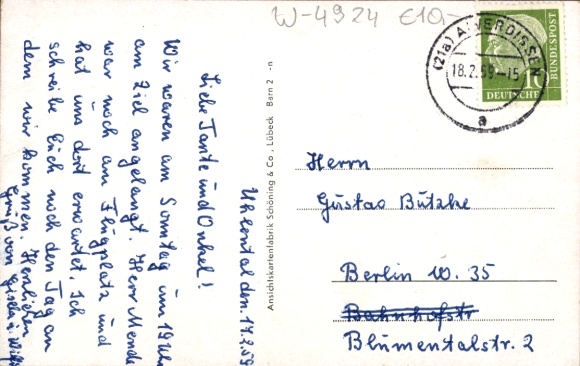 W-4924 €10,-
(21a) ALVERDISSEN
18.2.59-15
a
10
DEUTSCHE
BUNDESPOST
Uhlental den 17.2.59
Liebe Tante und Onkel!
Wir waren am Sonntag um 19 Uhr
am Ziel angelangt. Herr Mende
war noch am Flugplatz und
hat uns dort erwartet. Ich
schreibe Euch noch den Tag an
dem wir kommen. Herzlichen
Gruß von Gisela u. Willi
Ansichtskartenfabrik Schöning & Co., Lübeck Barn 2 -n
Herrn
Gustav Bützke
Berlin W. 35
Bahnhofstr
Blumentalstr. 2